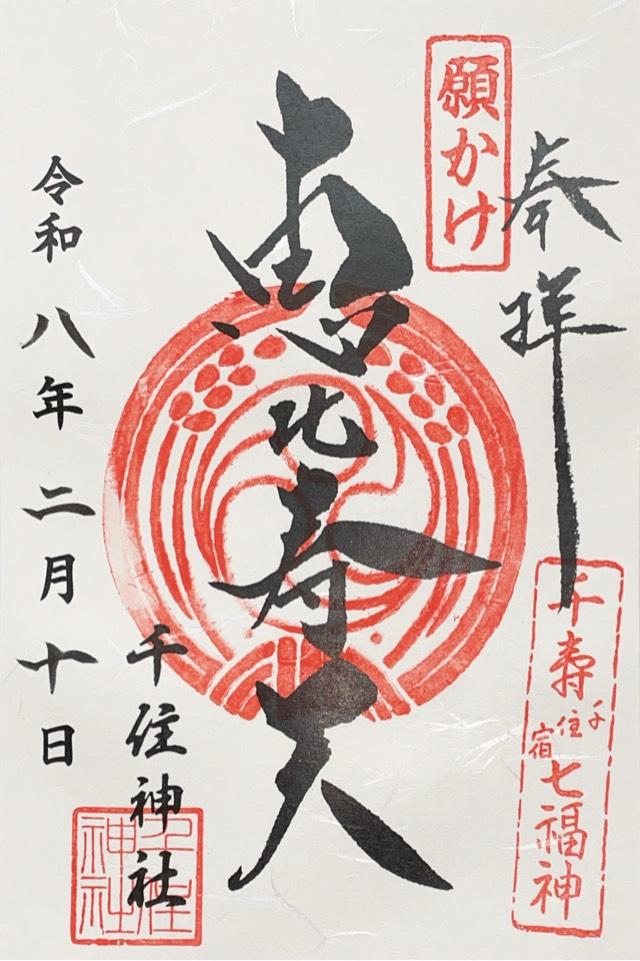 奉拝
願かけ
千寿
千住宿
七福神
恵比寿天
千住神社
千住神社
令和八年二月十日